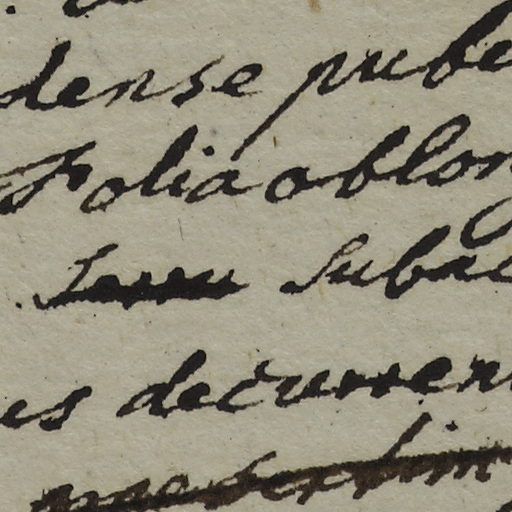 dense pube
Folia oblon
subac
es decurren